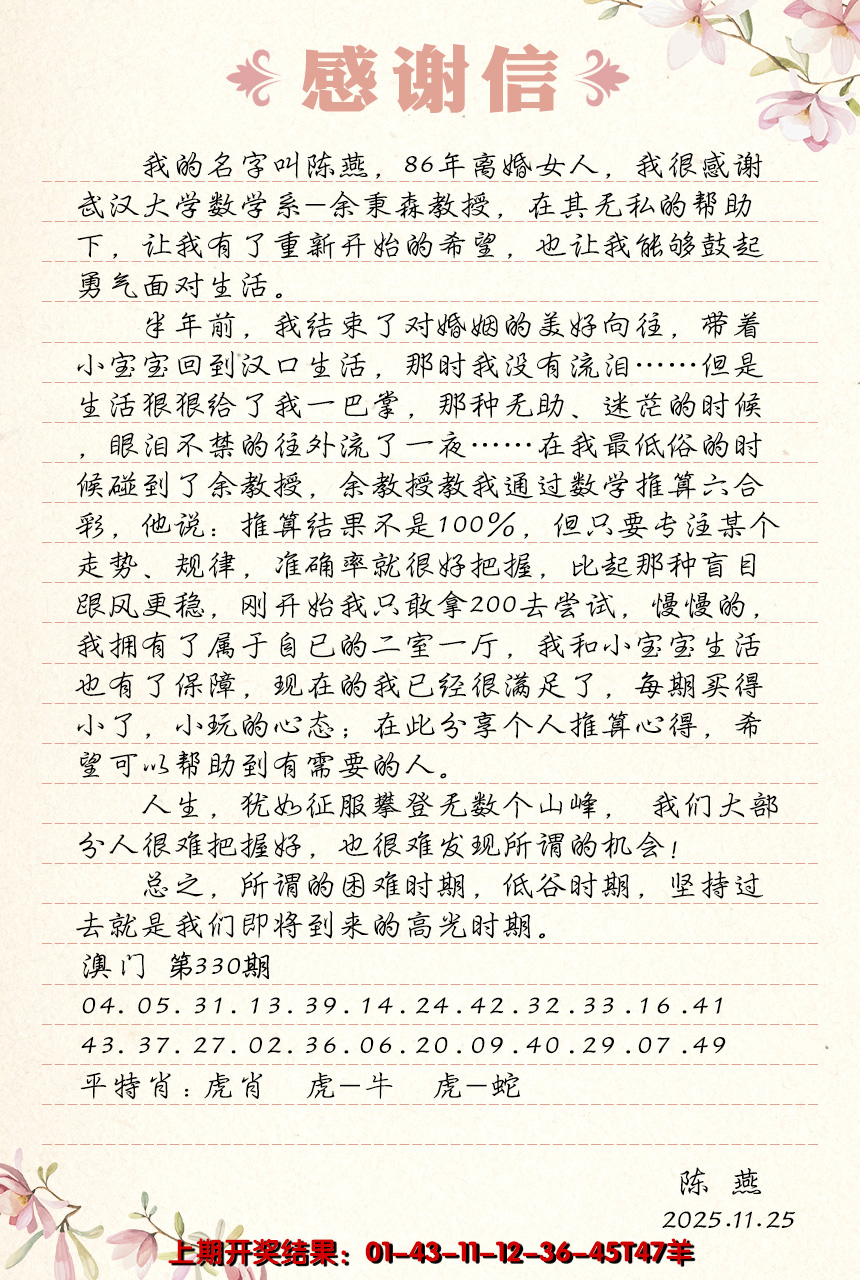 感谢信
我的名字叫陈燕，86年离婚女人，我很感谢
武汉大学数学系-余秉森教授，在其无私的帮助
下，让我有了重新开始的希望，也让我能够鼓起
勇气面对生活。
半年前，我结束了对婚姻的美好向往，带着
小宝宝回到汉口生活，那时我没有流泪……但是
生活狠狠给了我一巴掌，那种无助、迷茫的时候
，眼泪不禁的往外流了一夜……在我最低俗的时
候碰到了余教授，余教授教我通过数学推算六合
彩，他说：推算结果不是100%，但只要专注某个
走势、规律，准确率就很好把握，比起那种盲目
跟风更稳，刚开始我只敢拿200去尝试，慢慢的，
我拥有了属于自已的二室一厅，我和小宝宝生活
也有了保障，现在的我已经很满足了，每期买得
小了，小玩的心态；在此分享个人推算心得，希
望可以帮助到有需要的人。
人生，犹如征服攀登无数个山峰， 我们大部
分人很难把握好，也很难发现所谓的机会！
总之，所谓的困难时期，低谷时期，坚持过
去就是我们即将到来的高光时期。
澳门 第330期
04.05.31.13.39.14.24.42.32.33.16.41
43.37.27.02.36.06.20.09.40.29.07.49
平特肖：虎肖 虎-牛 虎-蛇
陈 燕
2025.11.25
上期开奖结果：01-43-11-12-36-45T47羊